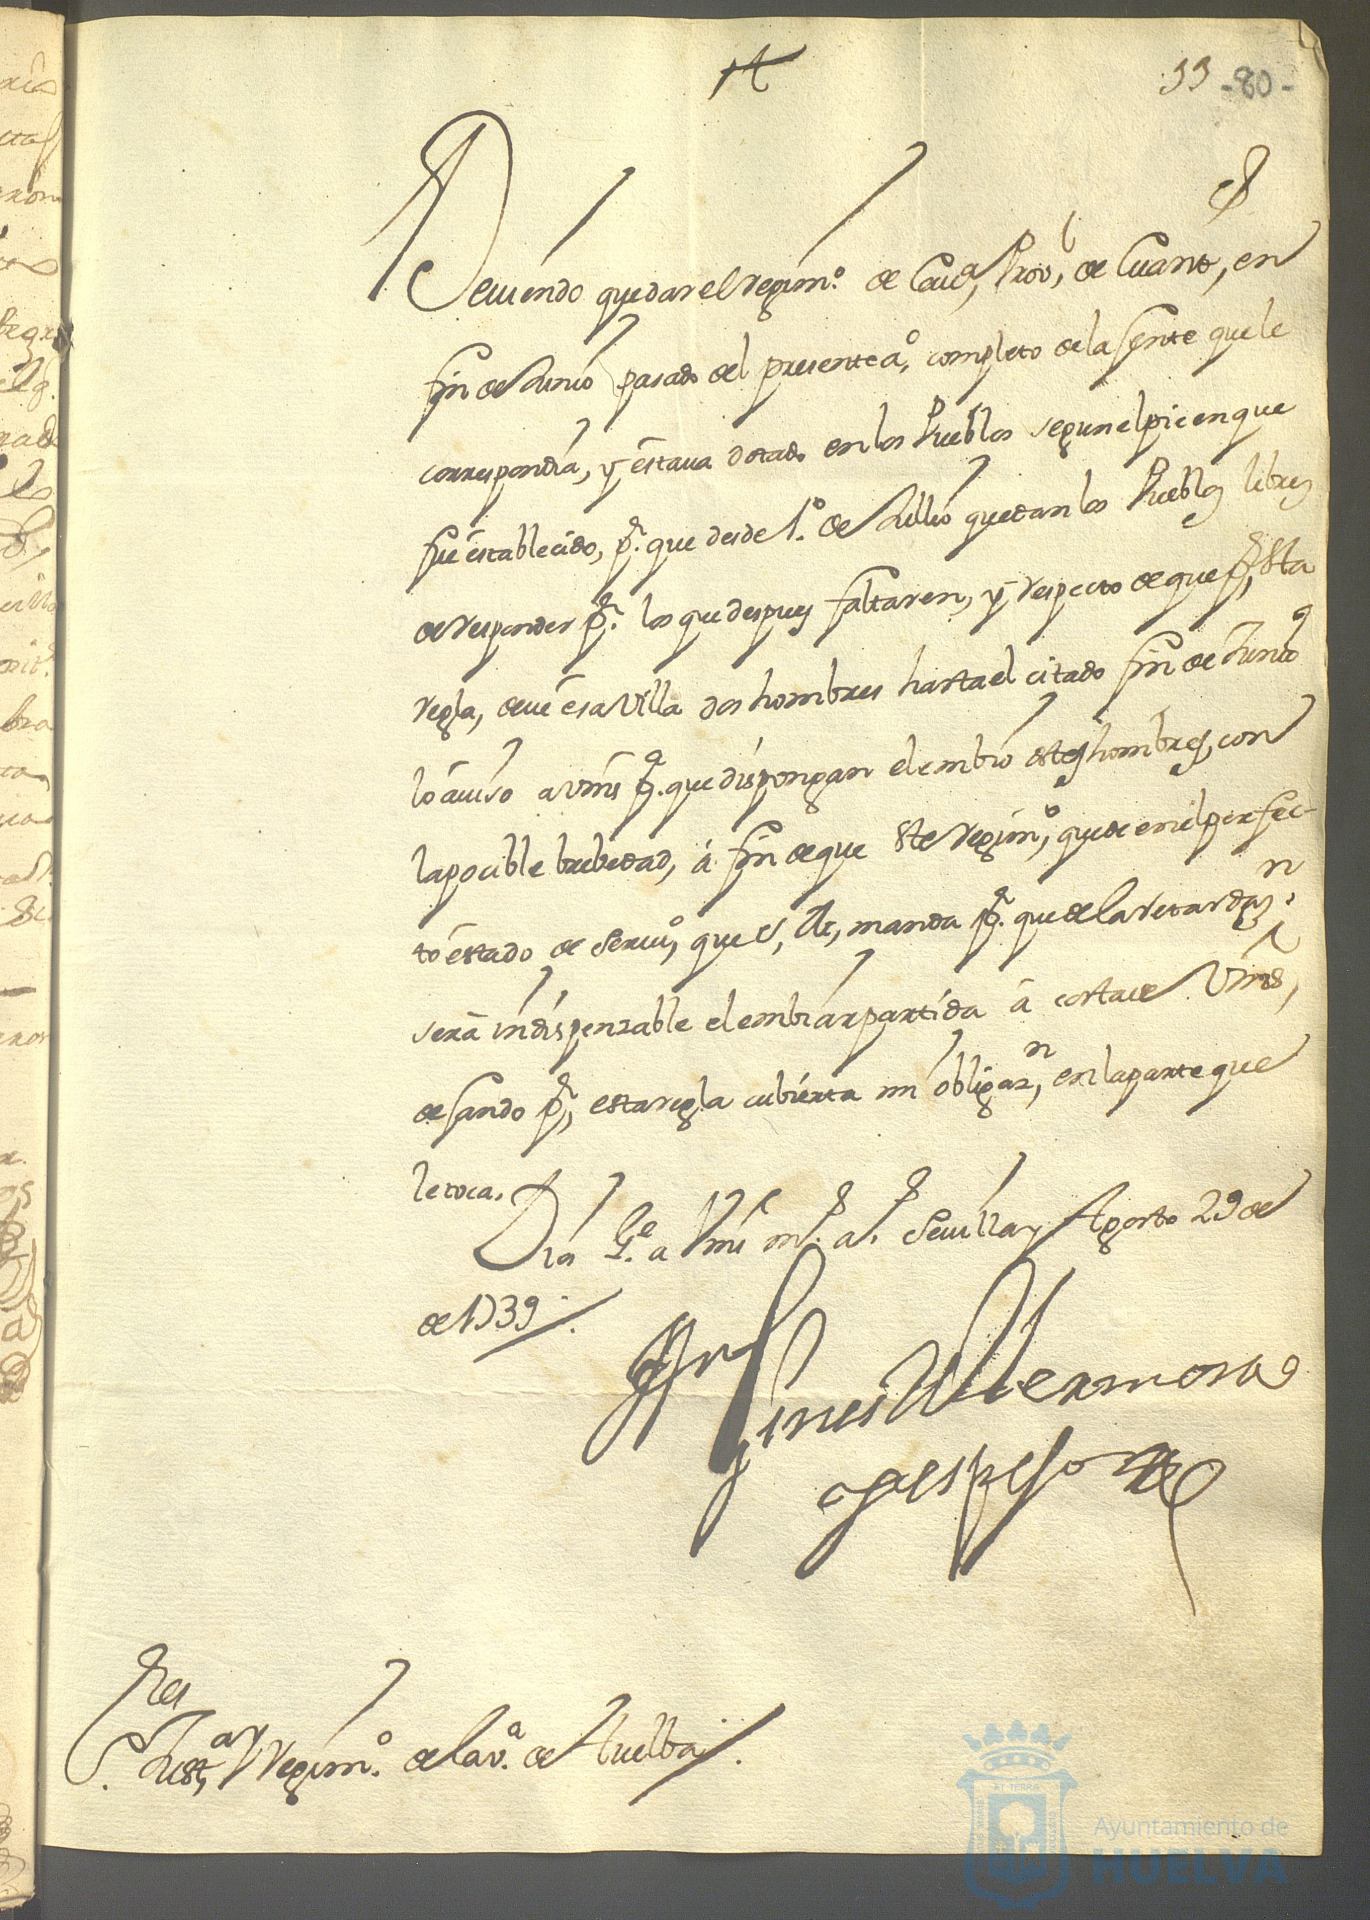 33 -80-
Deuiendo quedar el regim.º de Cau.ª, Prov.l, de Cuant.,, en
fin de Junio pasado del presente a.º, completo de la Gente que le
correspondia, y estaua dotado en los Pueblos segun el pie en que
fue establecido, p.ª que desde 1.º de Jullio quedan los Pueblos libres
de responder p.r los que despues faltaren, y respecto de que p.r esta
regla, deue esa Villa dos hombres hasta el citado fin de Junio
lo auiso a Vms p.ª que dispongan el embio destos hombres, con
la pocible brebedad, á fin de que este regim.º, quede en el perfec-
to estado de seruiº, que S, M, manda p.r que de la retardaz.n
será indispensable el embiar partida à costa de Vms,
dejando p.r esta regla cubierta mi obligaz.n, en la parte que
le toca.
Dios g.e a Vms m.s a.s Seuilla y Agosto 29 de
de 1739.
Gines de Hermosa
y espejo
res
S. Just.ª y regim.º de la v.ª de Huelba.
Ayuntamiento de
HUELVA